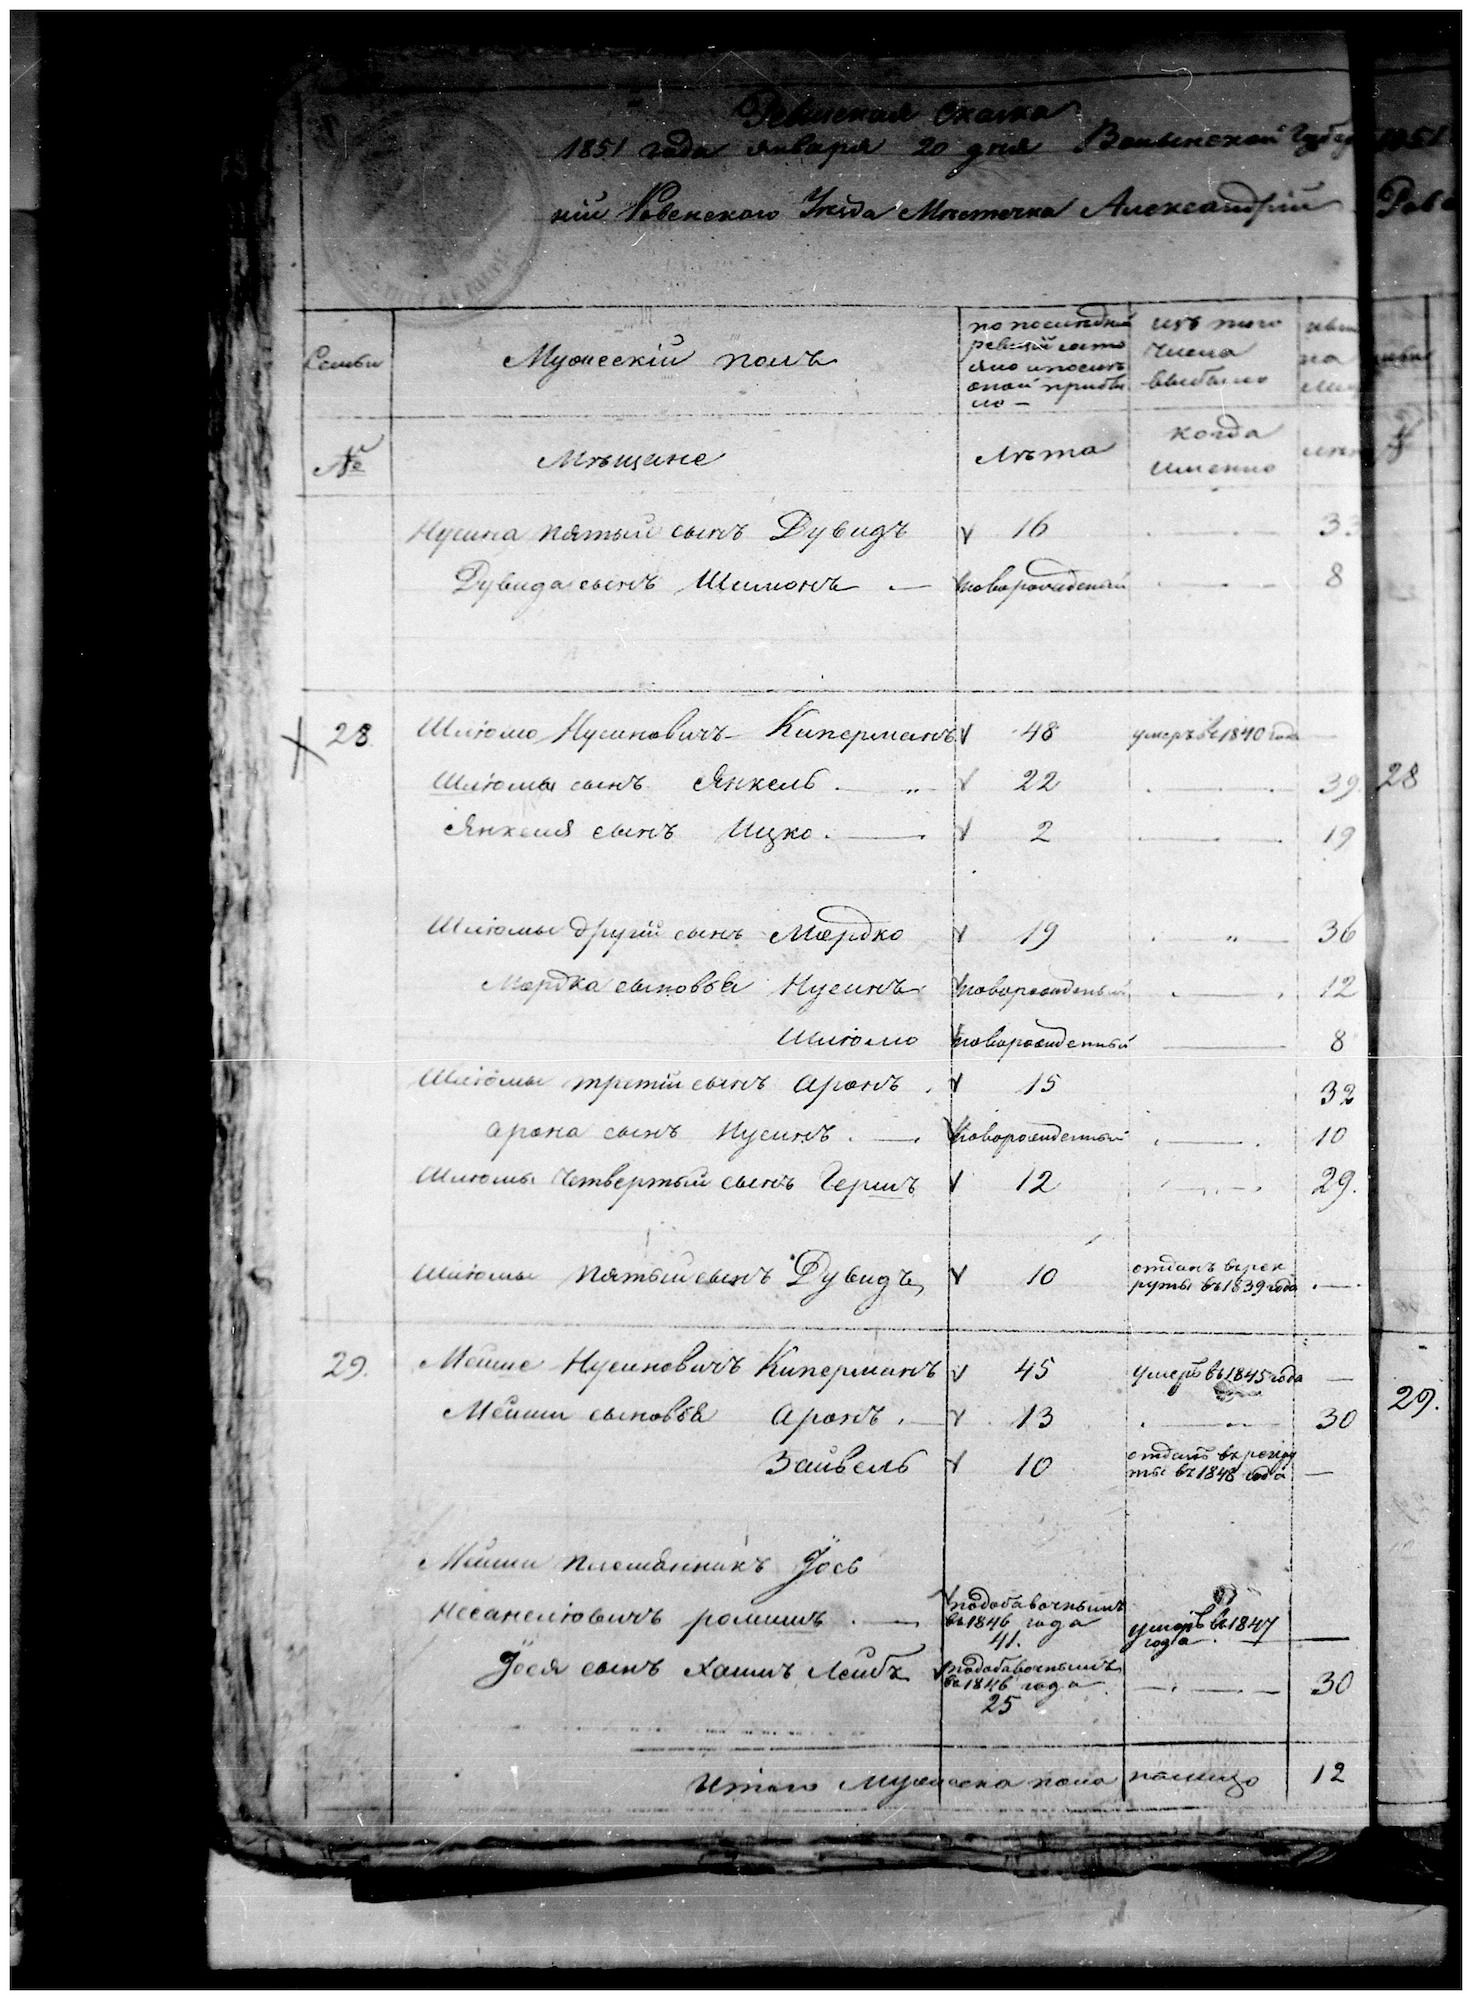 Ревиская сказка
1851 года января 20 дня Волынской Губер
ніи Ровенского Уезда Местечка Александріи
Семьи
Мужескій полъ
по последней
ревизіи состо
яло и после
оной прибы
ло —
изъ того
числа
выбыло
на
№
Мѣщане
Лѣта
когда
именно
Нусина пятый сынъ Дувидъ 16 33
Дувида сынъ Шимонъ — новорожденный 8
28 Шліомо Нусиновичъ Киперманъ 48 умеръ въ 1840 года —
Шліомы сынъ Янкель 22 39
Янкеля сынъ Ицко 2 19
Шліомы другій сынъ Мордко 19 36
Мордка сыновья Нусинъ новорожденный 12
Шліомо новорожденный 8
Шліомы третій сынъ Аронъ 15 32
Арона сынъ Нусинъ новорожденный 10
Шліомы четвертый сынъ Гершъ 12 29.
Шліомы пятый сынъ Дувидъ 10 отданъ въ рек
руты въ 1839 года
29. Мейше Нусиновичъ Киперманъ 45 умеръ въ 1845 года —
Мейши сыновья Аронъ 13 30
Зайвель 10 отданъ въ рекру
ты въ 1848 года —
Мейши племянникъ Іось
подобавочнымъ
въ 1846 года
41.
умеръ въ 1847
года
Іося сынъ Хаимъ Лейбъ подобавочнымъ
въ 1846 года
25
30
Итого Мужеска пола налицо 12
1851
Рове
№
28
29.